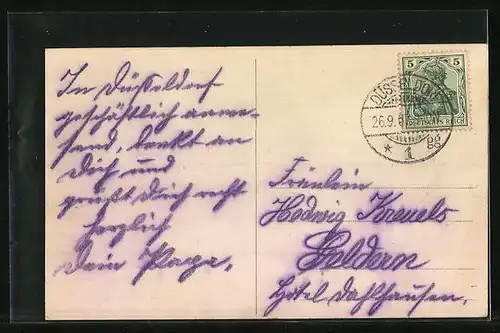 In Düsseldorf
geschäftlich anwe-
send, denkt an
Dich und
grüßt Dich recht
herzlich
Dein Papa.
5 5
DEUTSCHES REICH
DÜSSELDORF
26.9.
* 1 gg
Fräulein
Hedwig Kreuels
Geldern
Hotel Dahlhausen.